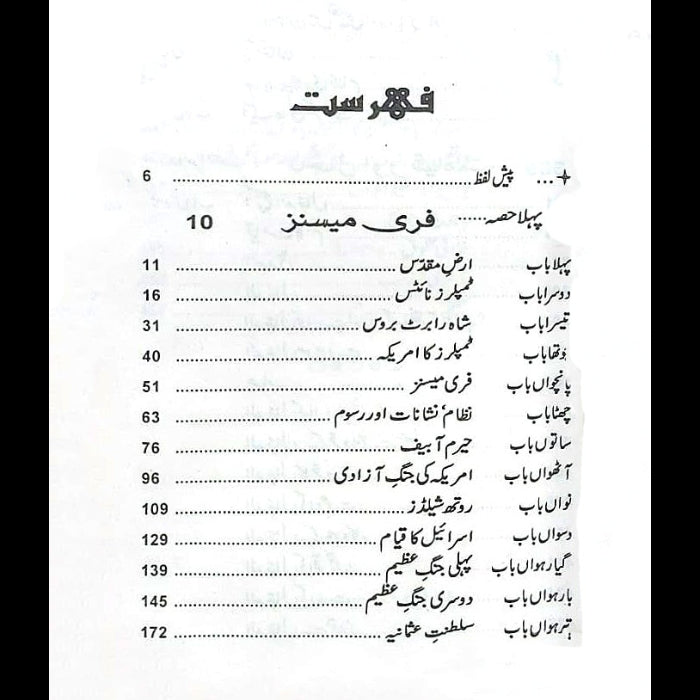 فہرست
... پیش لفظ ........ 6
پہلا حصہ...... فری میسنز 10
پہلا باب ارضِ مقدّس ........ 11
دوسرا باب ٹمپلرز نائٹس ........ 16
تیسرا باب شاہ رابرٹ بروس ........ 31
چوتھا باب ٹمپلرز کا امریکہ ........ 40
پانچواں باب فری میسنز ........ 51
چھٹا باب نظام‘ نشانات اور رسوم ........ 63
ساتواں باب حیرم آبیف ........ 76
آٹھواں باب امریکہ کی جنگِ آزادی ........ 96
نواں باب روتھ شیلڈز ........ 109
دسواں باب اسرائیل کا قیام ........ 129
گیارہواں باب پہلی جنگِ عظیم ........ 139
بارہواں باب دوسری جنگِ عظیم ........ 145
تیرہواں باب سلطنتِ عثمانیہ ........ 172